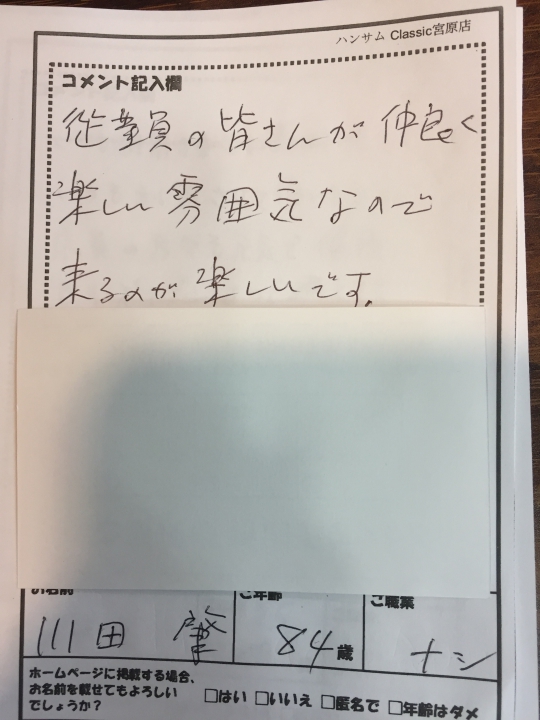 ハンサム Classic宮原店
コメント記入欄
従業員の皆さんが仲良く
楽しい雰囲気なので
来るのが楽しいです。
お名前 ご年齢 ご職業
川田 肇 84歳 ナシ
ホームページに掲載する場合、
お名前を載せてもよろしい
でしょうか? □はい □いいえ □匿名で □年齢はダメ